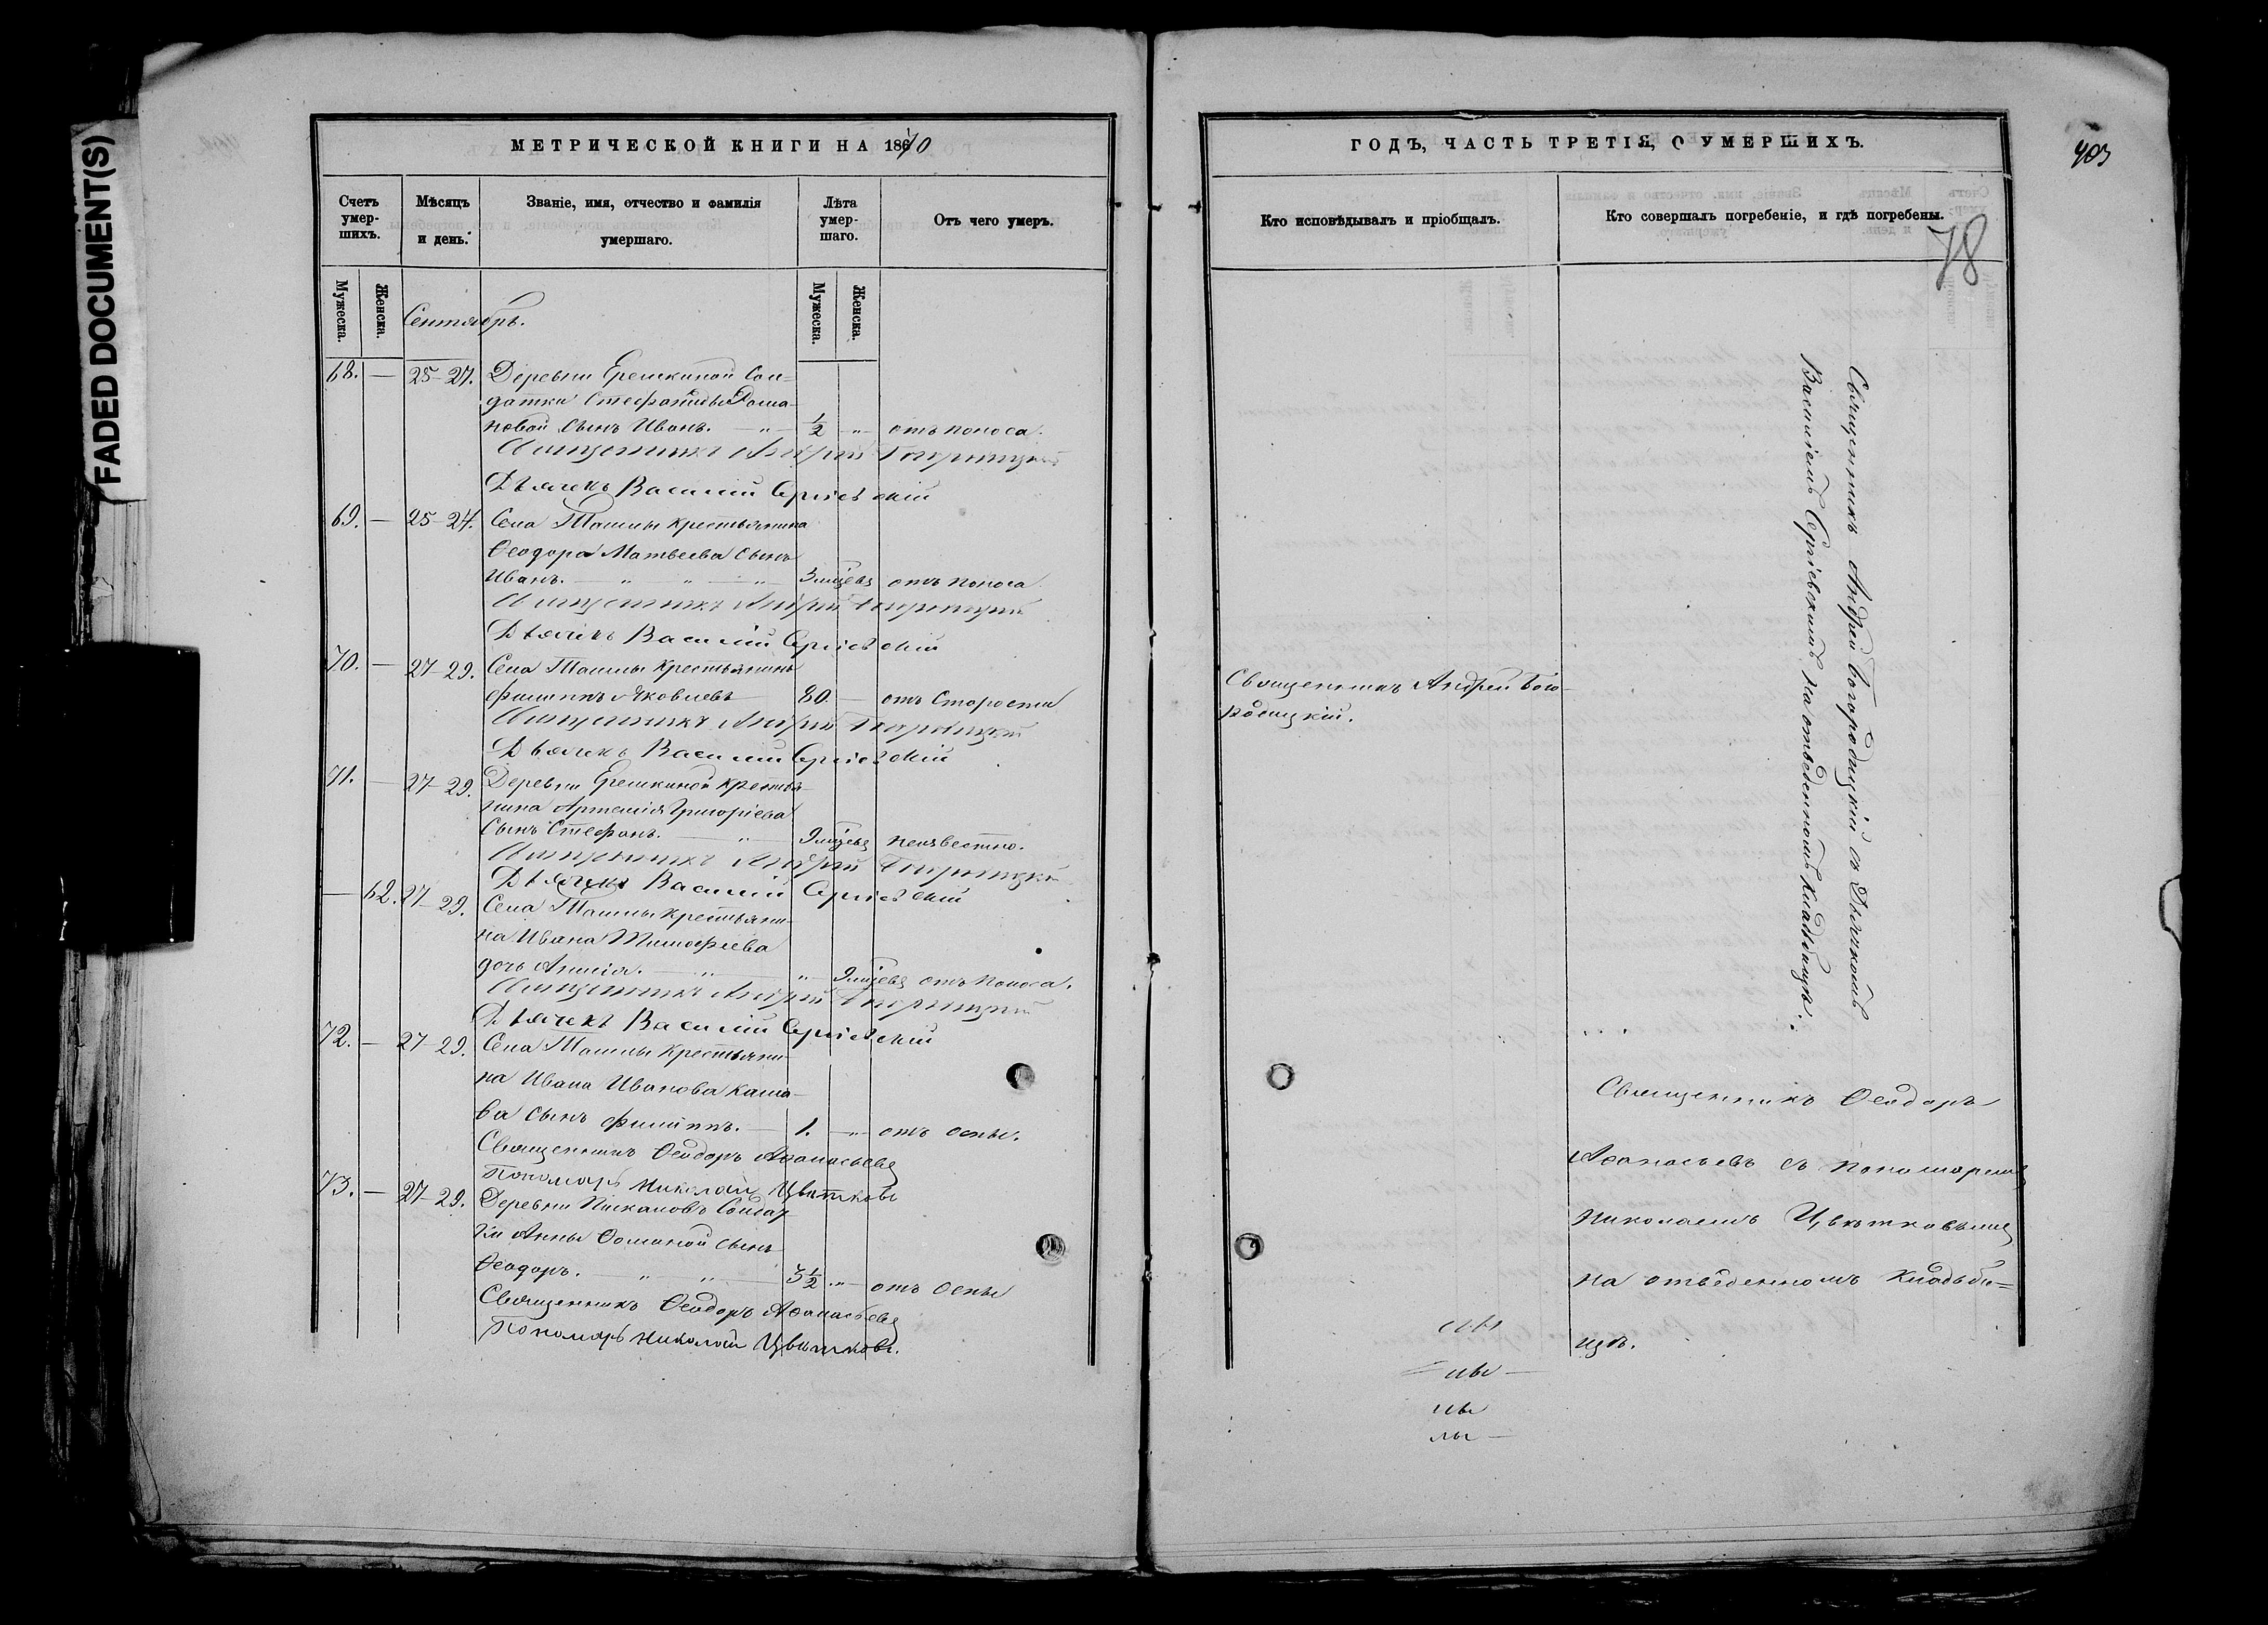 FADED DOCUMENT(S)
МЕТРИЧЕСКОЙ КНИГИ НА 1870
Счетъ умер-шихъ.
Мѣсяцъ и день.
Званіе, имя, отчество и фамилія умершаго.
Лѣта умер-шаго.
Отъ чего умеръ.
Мужеска.
Женска.
Мужеска.
Женска.
Сентябрь.
68. — 25-27. Деревни Ерешкиной Сол=
датки Стефаниды Рома-
новой сынъ Иванъ. — " — 1/2 — " — отъ поноса.
Священникъ Андрей Богородицкій
Дьячекъ Василій Сергіевскій
69. — 25-27. Села Ташлы крестьянина
Ѳеодора Матвеева сынъ
Иванъ. — " — " — " — 3 мѣсяца отъ поноса
Священникъ Андрей Богородицкій
Дьячекъ Василій Сергіевскій
70. — 27-29. Села Ташлы крестьянинъ
Филиппъ Яковлевъ — 80. — отъ старости
Священникъ Андрей Богородицкій
Дьячекъ Василій Сергіевскій
71. — 27-29. Деревни Ерешкиной крестья-
нина Артемія Григоріева
сынъ Стефанъ. — " — 9 мѣсяцевъ неизвестно.
Священникъ Андрей Богородицкій
Дьячекъ Василій Сергіевскій
— 62. 27-29. Села Ташлы крестьяни-
на Ивана Тимофеева
дочь Анисія. — " — " — 9 мѣсяцевъ отъ поноса.
Священникъ Андрей Богородицкій
Дьячекъ Василій Сергіевскій
72. — 27-29. Села Ташлы крестьяни-
на Ивана Иванова
ва сынъ Филиппъ. — 1. — " — отъ оспы.
Священникъ Ѳеодоръ Аѳанасьевъ
Пономарь Николай Цвѣтковъ
73. — 27-29. Деревни Солдат
ки Анны сынъ
Ѳеодоръ. — " — " — 3 1/2 " — отъ оспы
Священникъ Ѳеодоръ Аѳанасьевъ
Пономарь Николай Цвѣтковъ.
ГОДЪ, ЧАСТЬ ТРЕТІЯ, О УМЕРШИХЪ.
403
Кто исповѣдывалъ и пріобщалъ.
Кто совершалъ погребеніе, и гдѣ погребены.
78
Священникъ Андрей Бого-
родицкій.
Священникъ Андрей Богородицкій съ Дьячкомъ
Василіемъ Сергіевскимъ на отведенномъ кладбищѣ.
Священникъ Ѳеодоръ
Аѳанасьевъ съ пономаремъ
Николаемъ Цвѣтковымъ
на отведенномъ кладби=
щѣ.